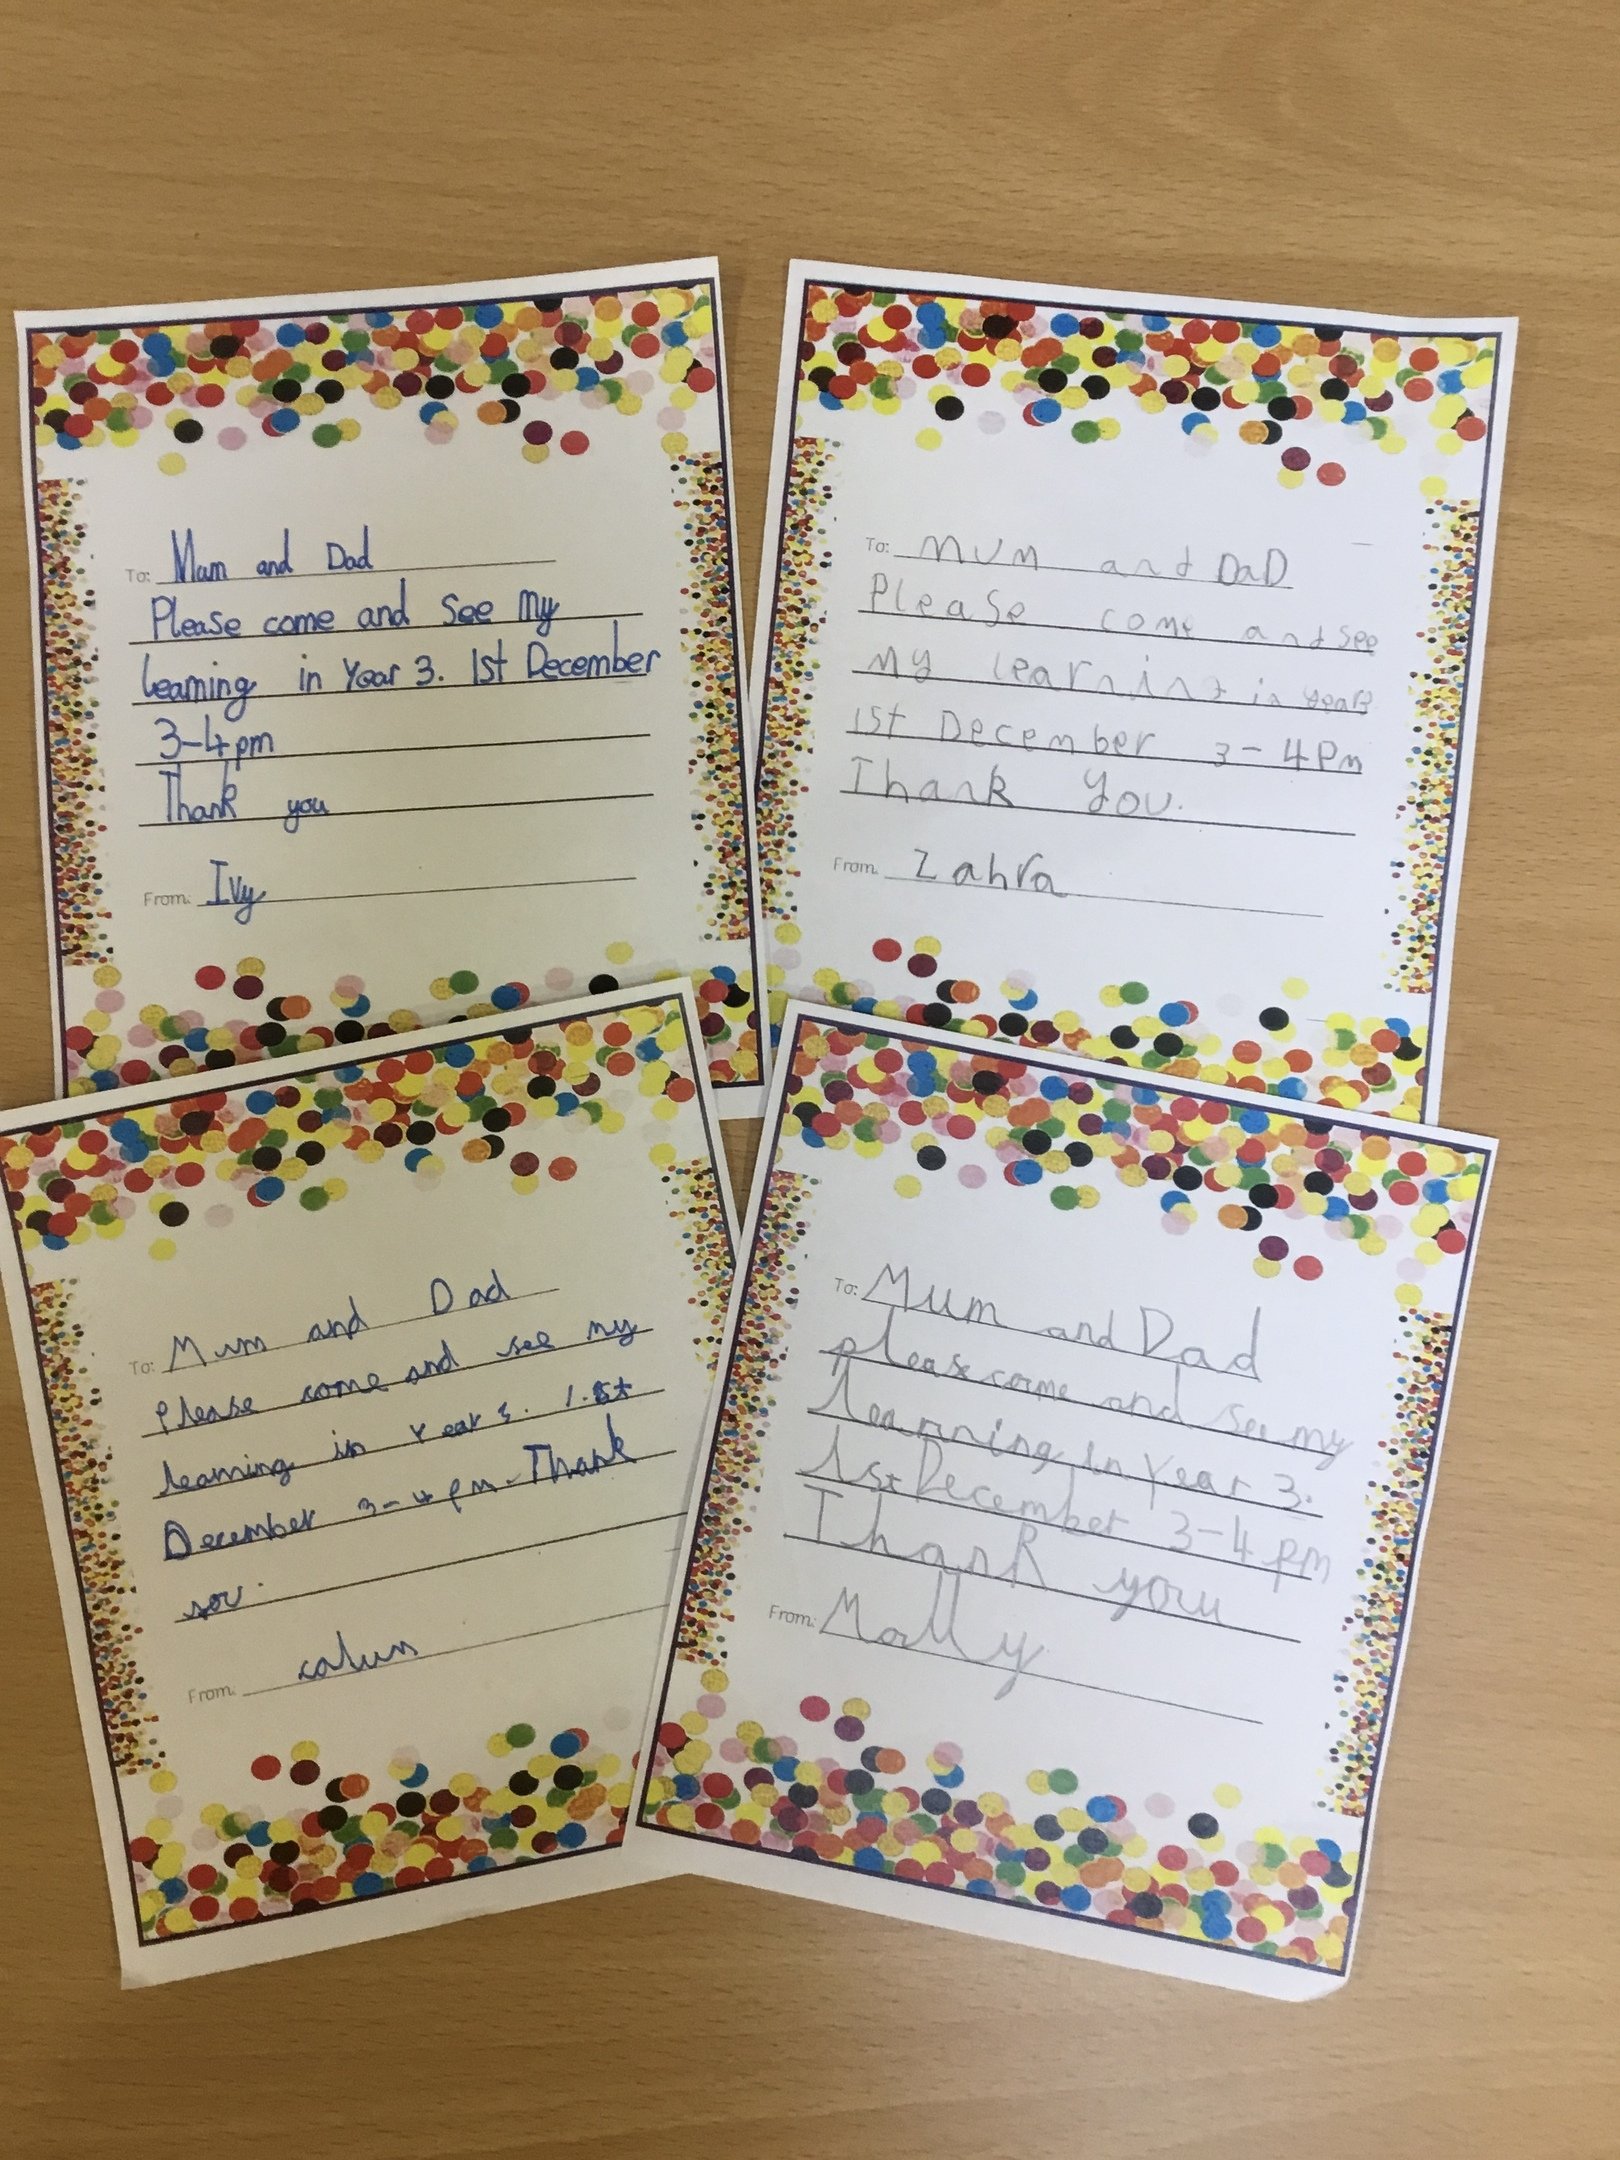 To: Mam and Dad
Please come and see my
learning in Year 3. 1st December
3-4pm
Thank you
From: Ivy
To: MUM and DaD
Please come and see
my learning in year3
1st December 3-4Pm
Thank You.
From: Zahra
To: Mum and Dad
Please come and see my
learning in Year 3. 1.st
December 3-4pm. Thank
you.
From: calum
To: Mum and Dad
please come and see my
learning in Year 3.
1st December 3-4 pm
Thank you
From: Molly